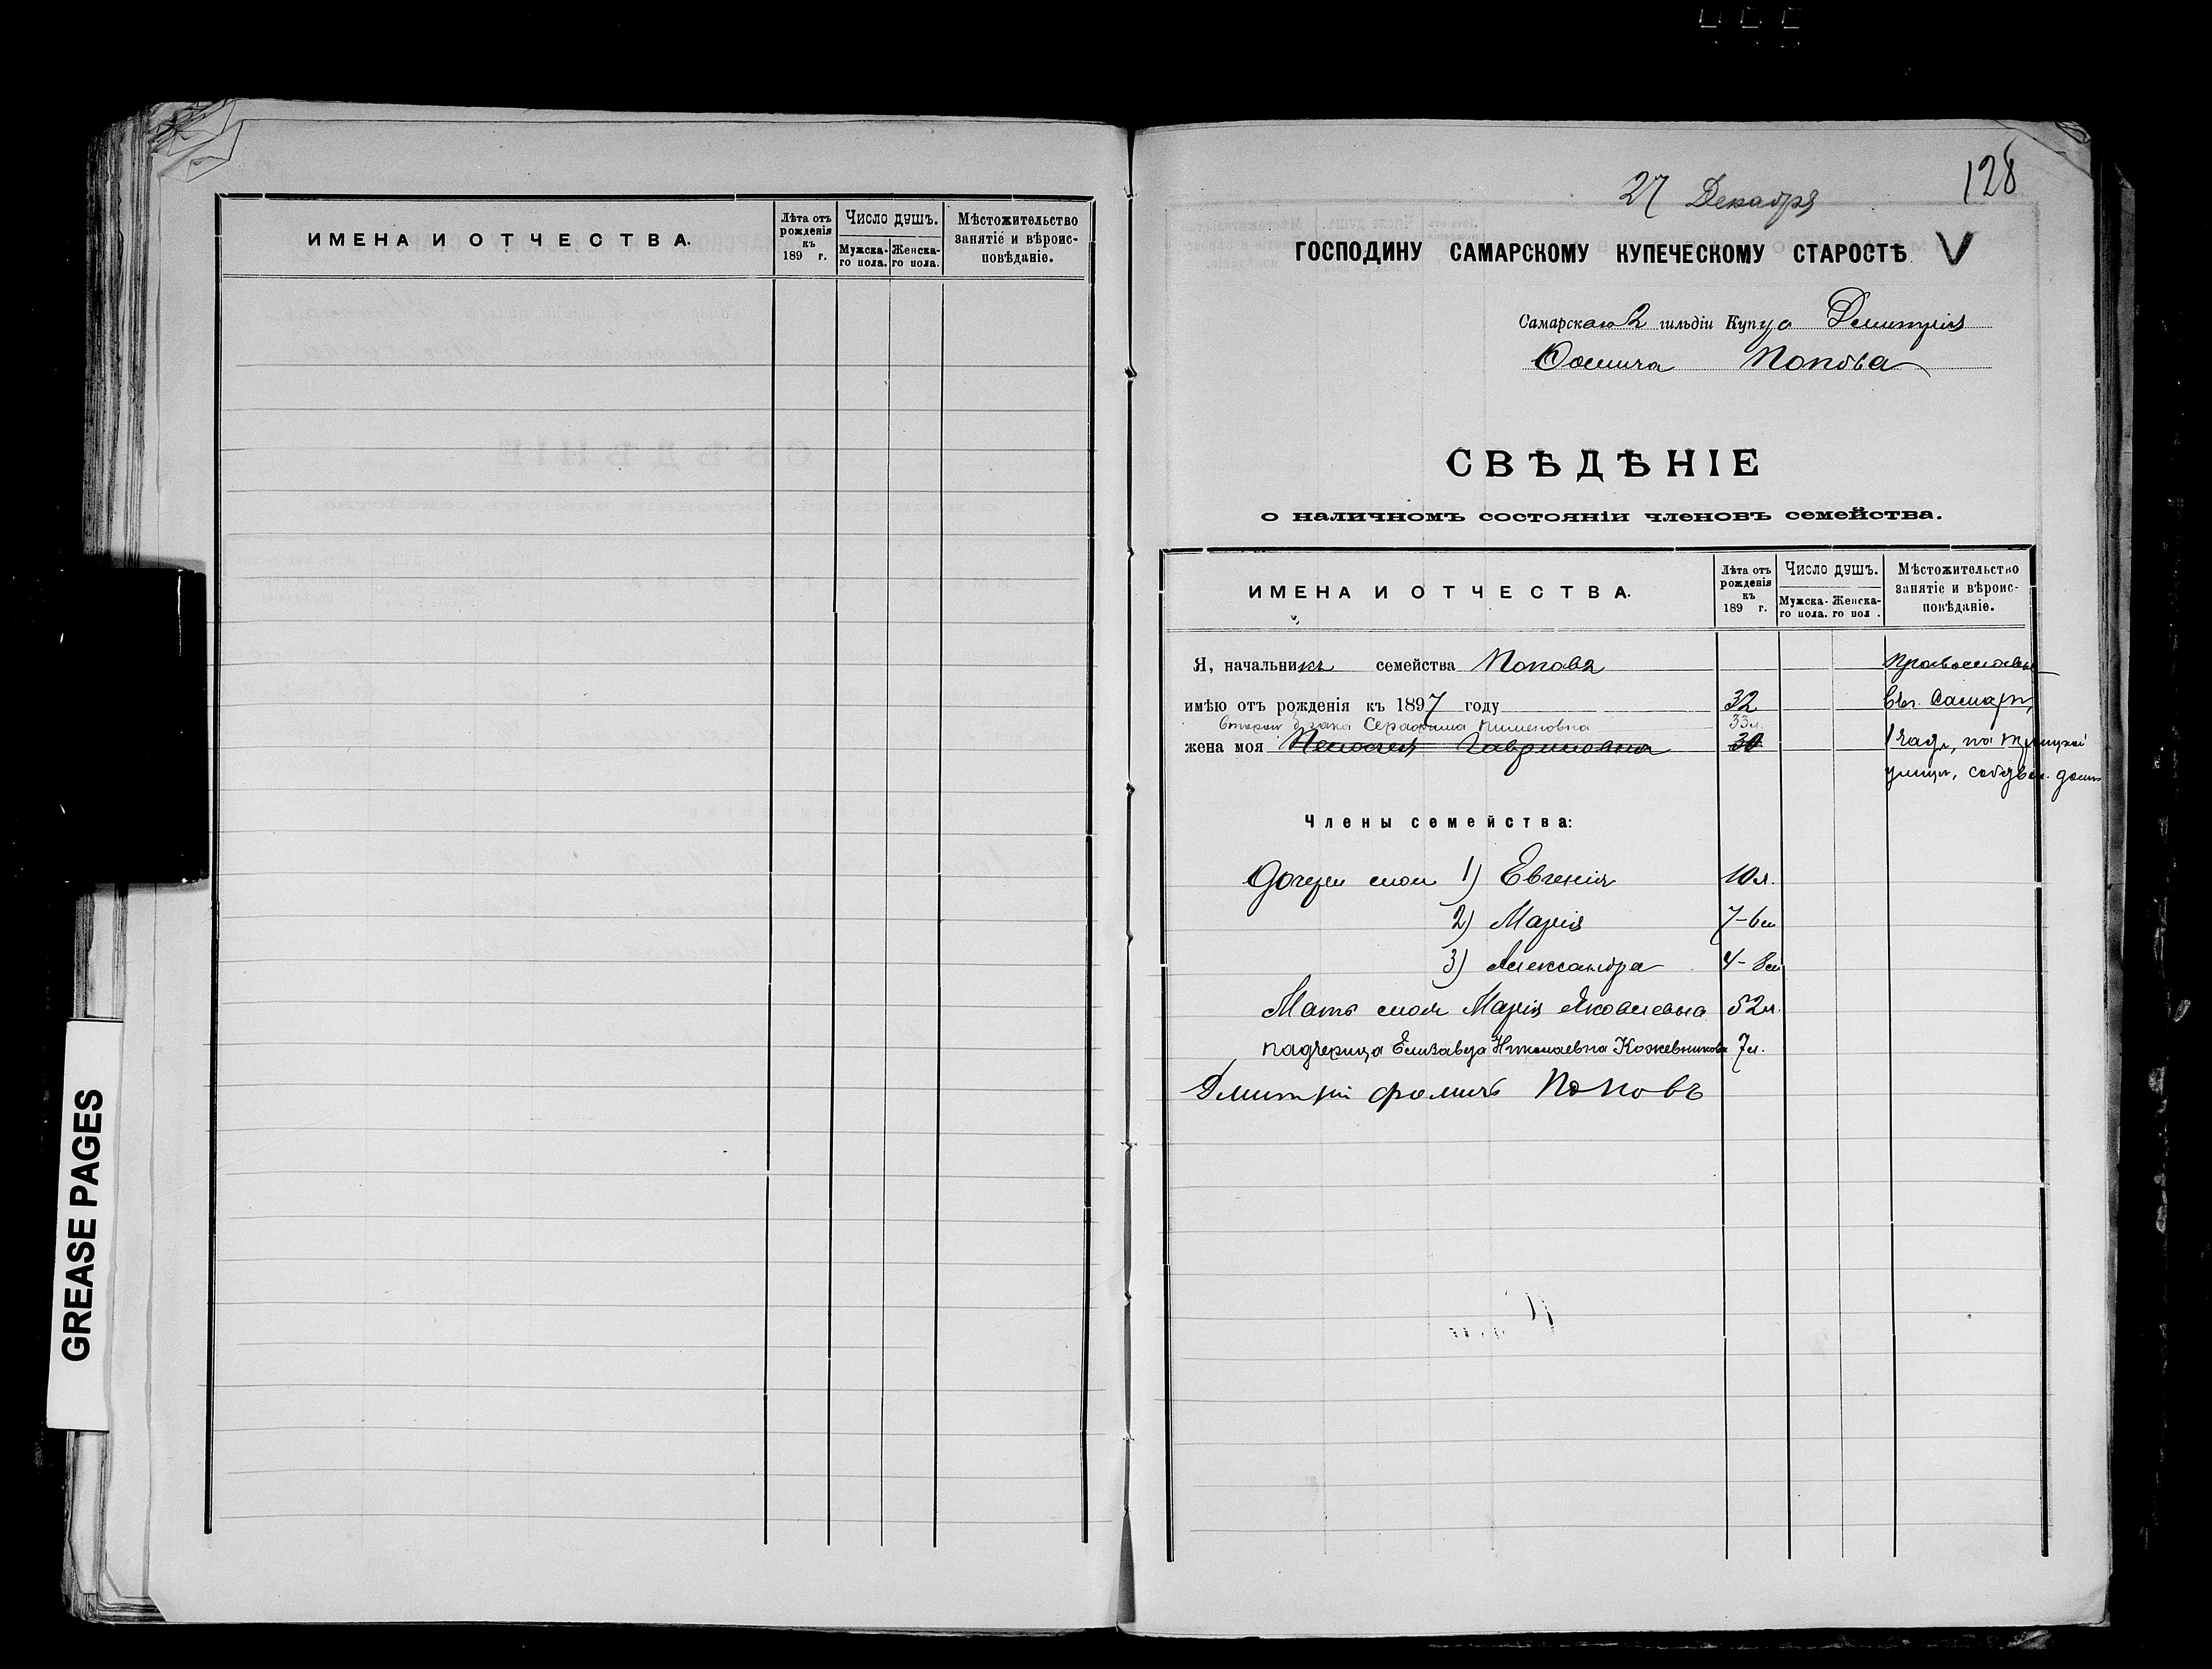 ИМЕНА И ОТЧЕСТВА.
Лѣта отъ рожденія къ 189 г.
Число душъ.
Мужска-го пола.
Женска-го пола.
Мѣстожительство занятіе и вѣроис-повѣданіе.
GREASE PAGES
128
27 Декабря
ГОСПОДИНУ САМАРСКОМУ КУПЕЧЕСКОМУ СТАРОСТѢ V
Самарскаго 2 гильдіи Купца Дмитрія
Фомича Попова
СВѢДѢНІЕ
о наличномъ состояніи членовъ семейства.
ИМЕНА И ОТЧЕСТВА.
Лѣта отъ рожденія къ 189 г.
Число душъ.
Мужска-го пола.
Женска-го пол .
Мѣстожительство занятіе и вѣроис-повѣданіе.
Я, начальникъ семейства Поповъ православн
имѣю отъ рожденія къ 1897 году 32 въ г. Самарѣ,
втораго брака Серафима Пименовна 33 л.
жена моя Гавриловна 30 1 части, по Троицкой
улицѣ, собствен. домъ
Члены семейства:
Дочери мои 1) Евгенія 10 л.
2) Марія 7-6 м
3) Александра 4-8 м
Мать моя Марія Яковлевна 52 л.
падчерица Елизавета Николаевна Кожевникова 7 л.
Дмитрій Фомичъ Поповъ